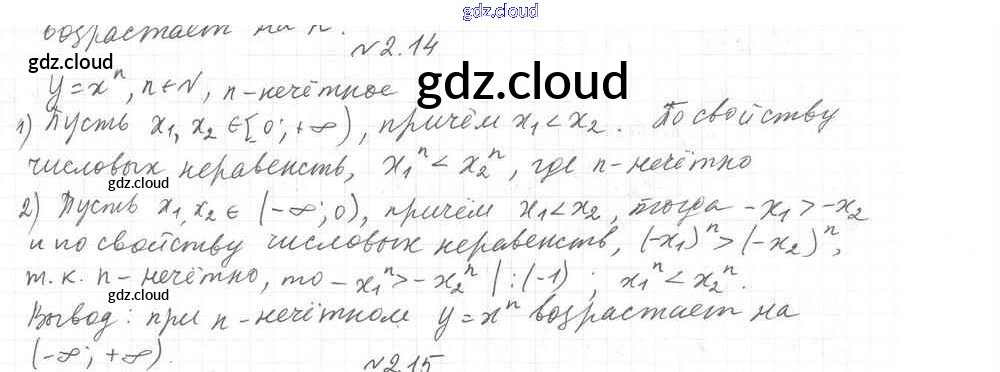 gdz.cloud
возрастает на R.
№2.14
gdz.cloud
y=xⁿ, n∈N, n-нечётное gdz.cloud
1) Пусть x₁, x₂ ∈ [0; +∞), причём x₁ < x₂. По свойству
числовых неравенств, x₁ⁿ < x₂ⁿ, где n-нечётно
gdz.cloud
2) Пусть x₁, x₂ ∈ (-∞; 0), причём x₁ < x₂, тогда -x₁ > -x₂
и по свойству числовых неравенств, (-x₁)ⁿ > (-x₂)ⁿ,
т.к. n-нечётно, то -x₁ⁿ > -x₂ⁿ |:(-1) ; x₁ⁿ < x₂ⁿ.
gdz.cloud
Вывод: при n-нечётном y=xⁿ возрастает на
(-∞; +∞).
№2.15